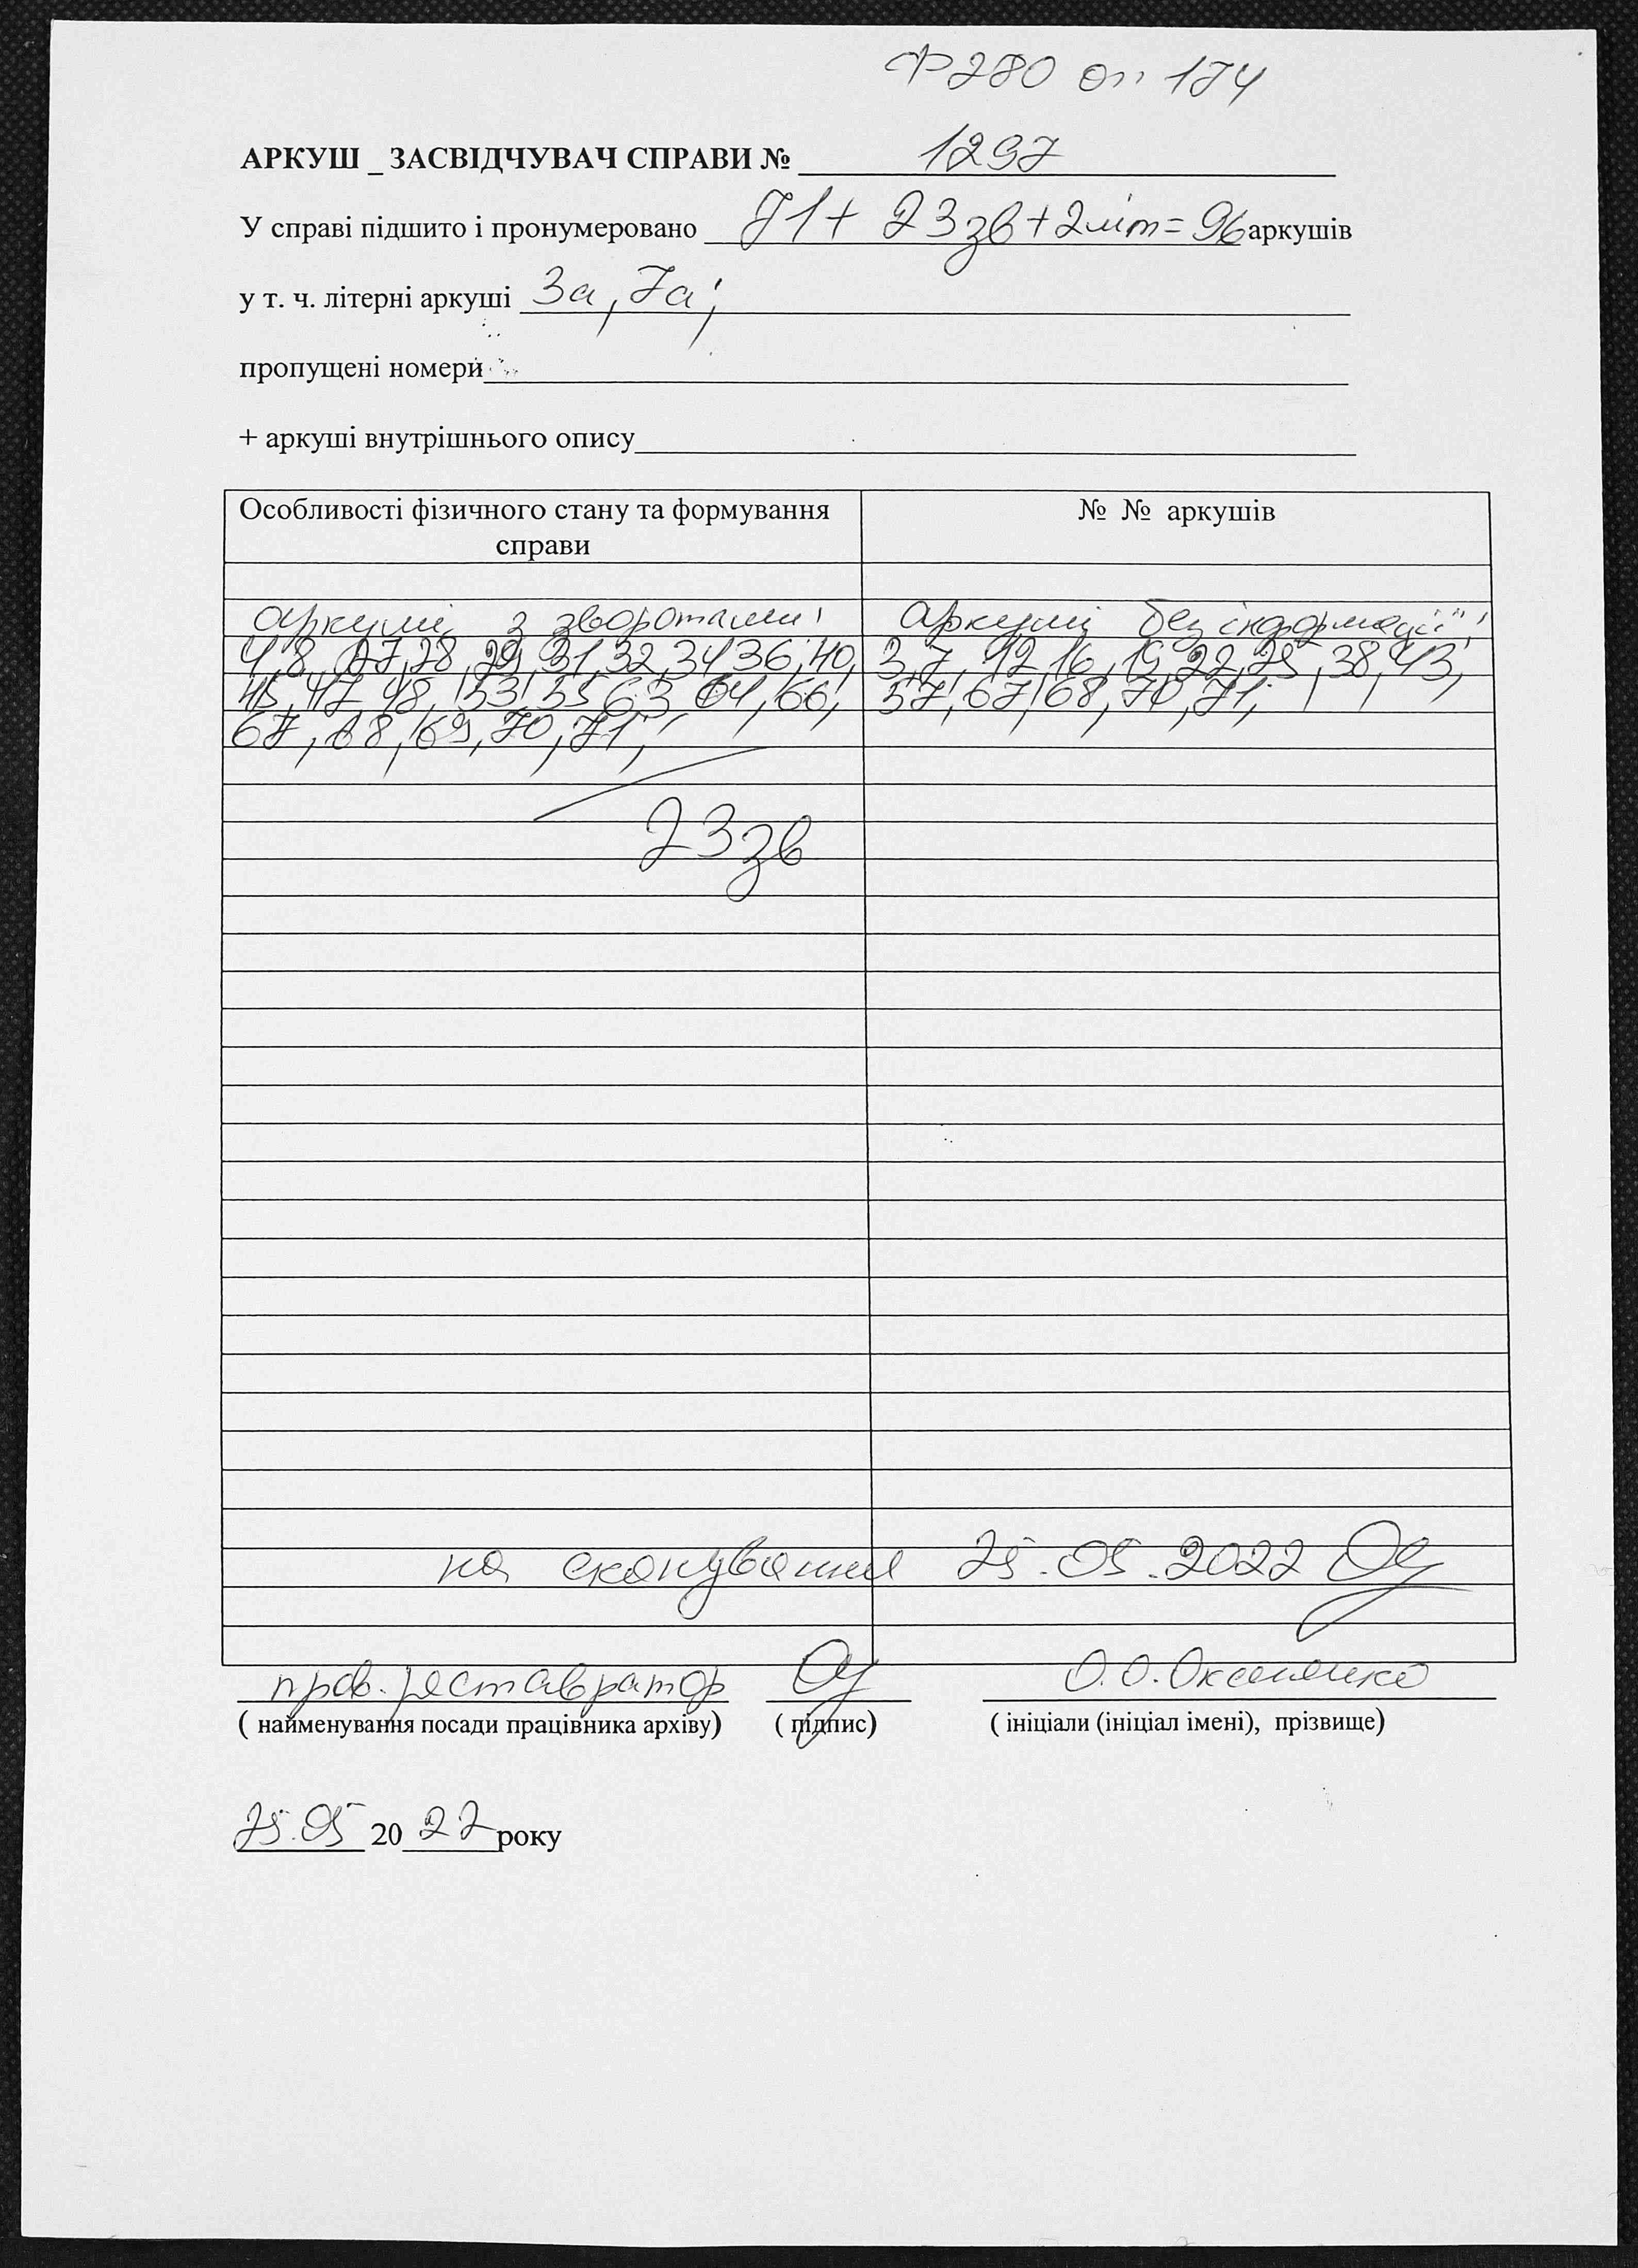 Ф 280 оп 174
АРКУШ _ ЗАСВІДЧУВАЧ СПРАВИ № 1297
У справі підшито і пронумеровано 71 + 23 зв + 2 літ = 96 аркушів
у т. ч. літерні аркуші 3а, 7а;
пропущені номери
+ аркуші внутрішнього опису
Особливості фізичного стану та формування справи
№ № аркушів
аркуші з зворотами:
4, 8, 27, 28, 29, 31, 32, 34, 36, 40,
45, 47, 48, 53, 55, 63, 64, 66,
67, 68, 69, 70, 71,
23 зв
аркуші без інформації:
3, 7, 12, 16, 19, 22, 25, 38, 43,
57, 67, 68, 70, 71,
на сканування 25.05.2022
пров. реставратор О.О. Оксененко
( найменування посади працівника архіву) ( підпис) ( ініціали (ініціал імені), прізвище)
25.05 2022 року